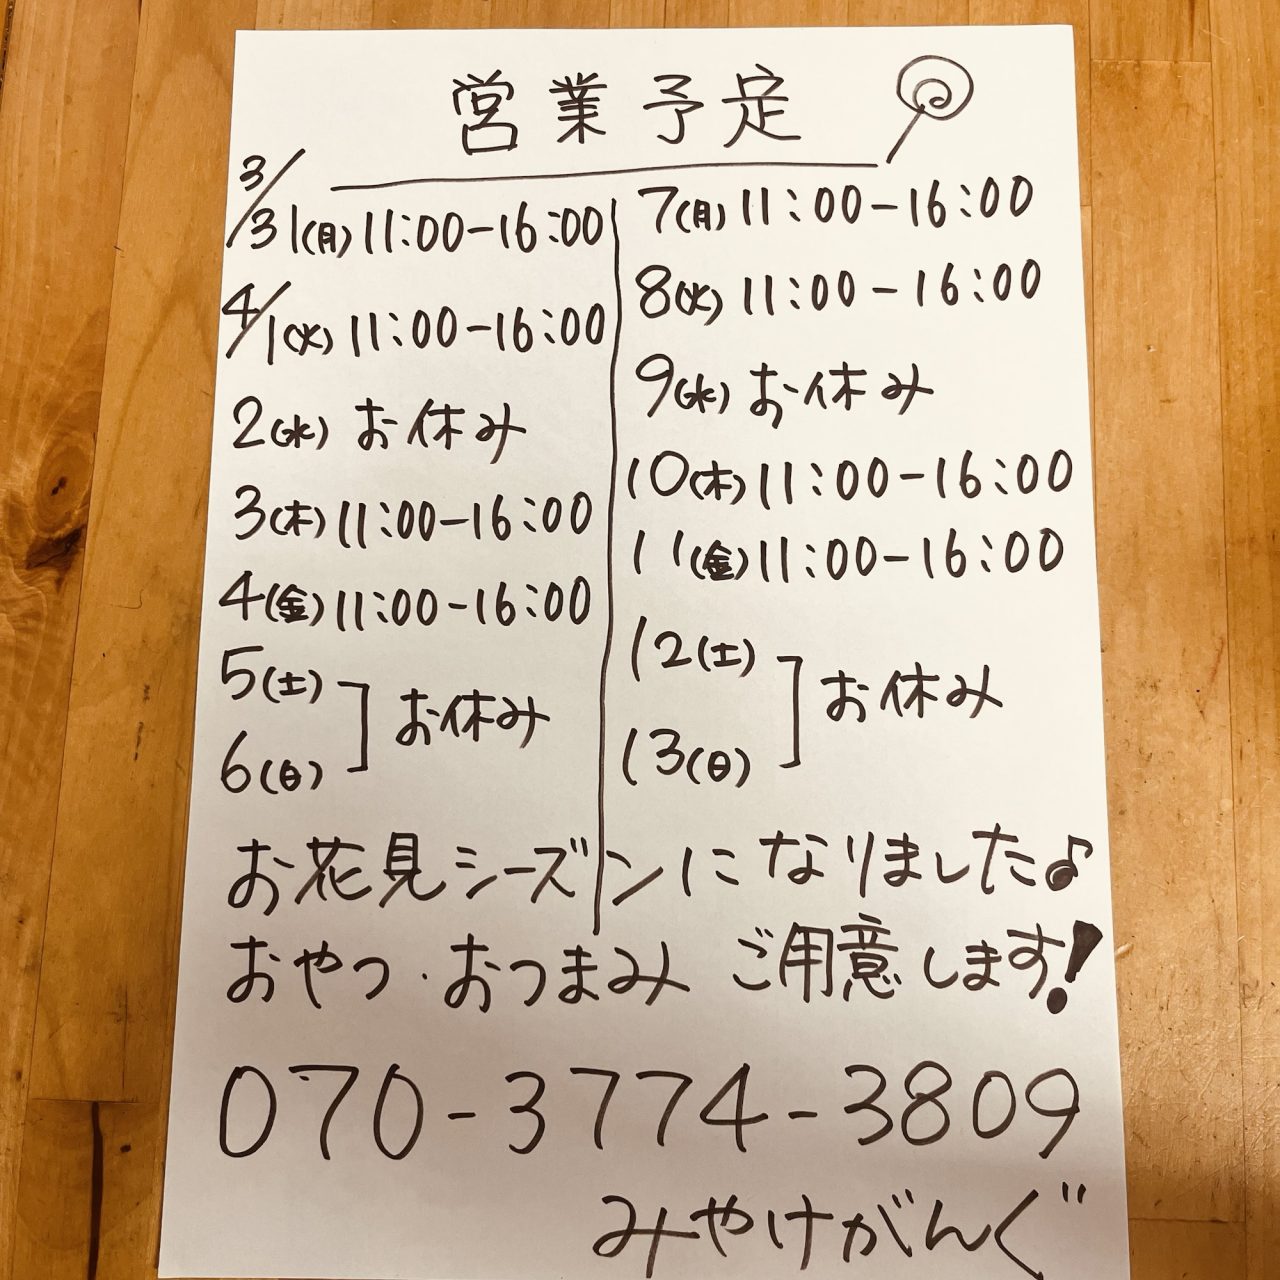 営業予定
3/31(月) 11:00-16:00
4/1(火) 11:00-16:00
2(水) お休み
3(木) 11:00-16:00
4(金) 11:00-16:00
5(土)
6(日)
お休み
7(月) 11:00-16:00
8(火) 11:00-16:00
9(水) お休み
10(木) 11:00-16:00
11(金) 11:00-16:00
12(土)
13(日)
お休み
お花見シーズンになりました♪
おやつ・おつまみ ご用意します!
070-3774-3809
みやけがんぐ